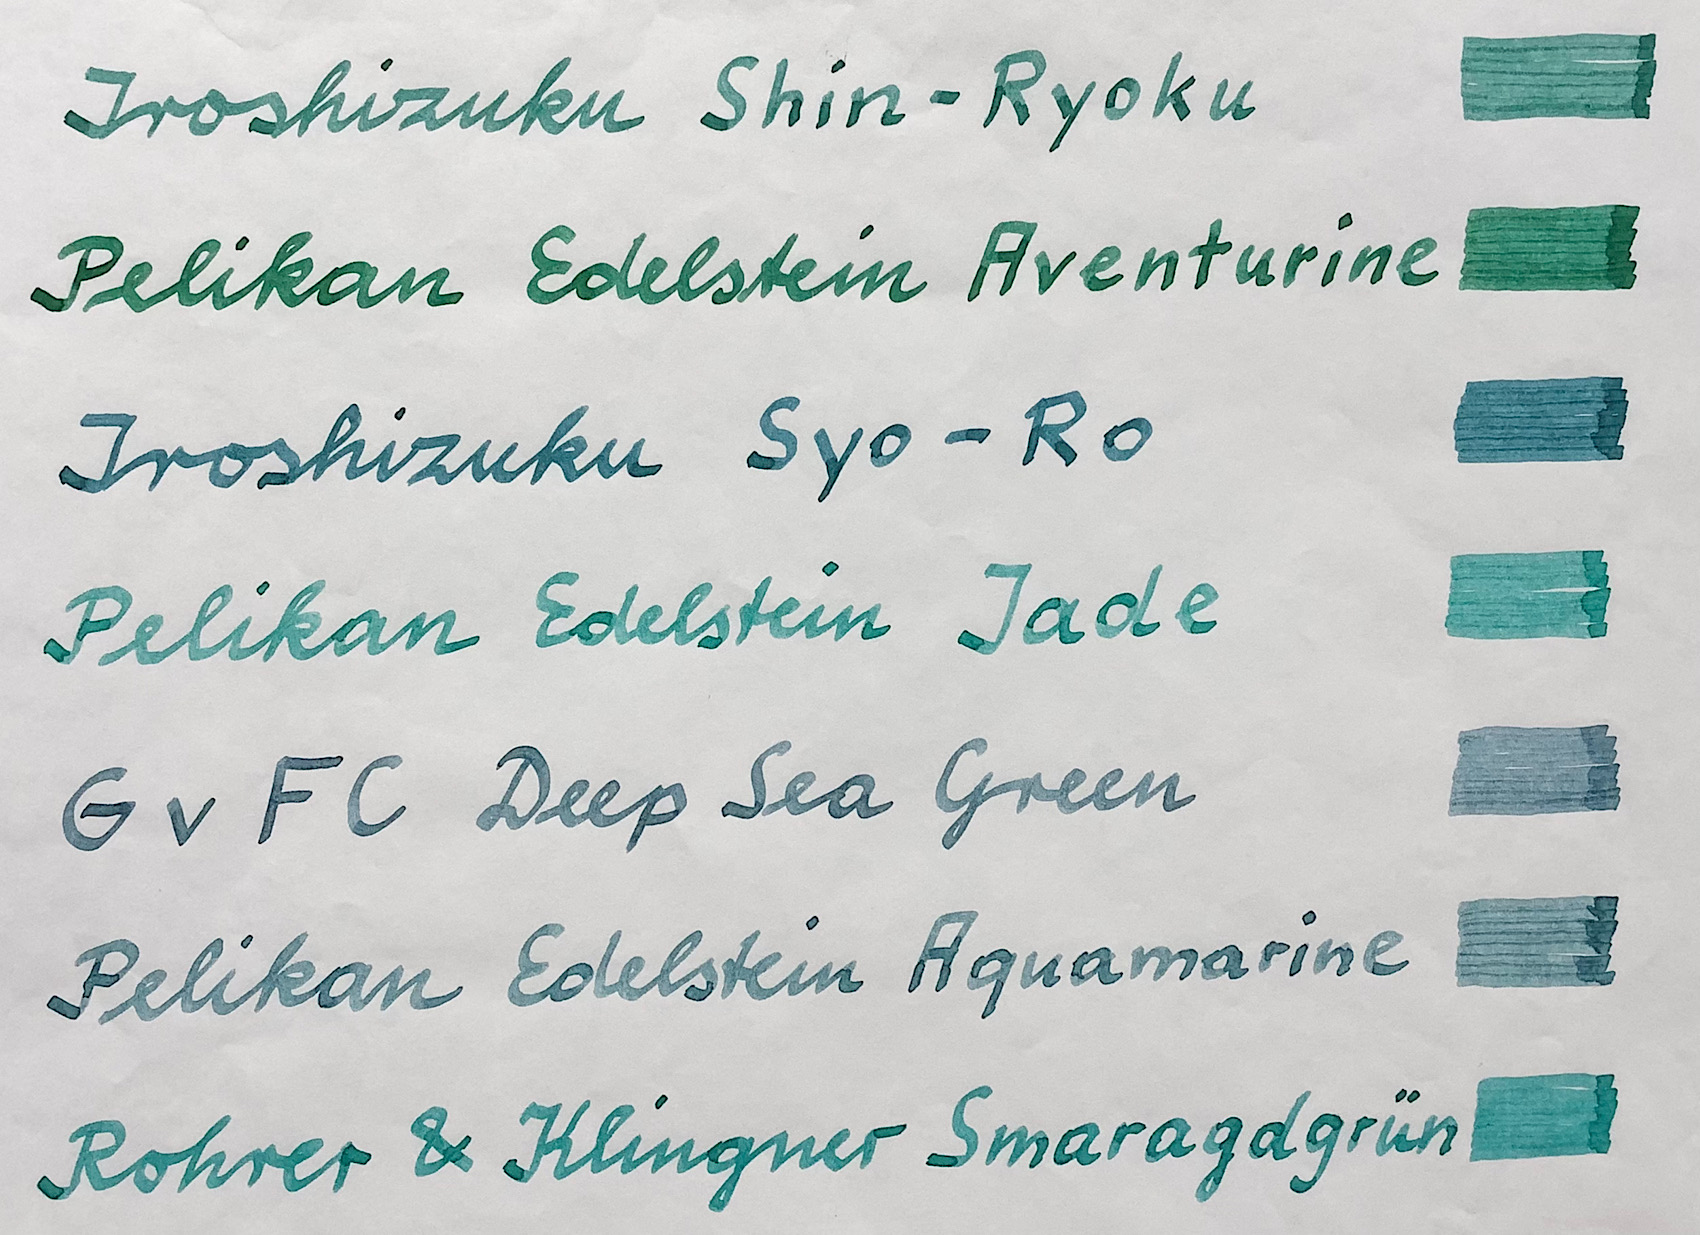 Iroshizuku Shin-Ryoku
Pelikan Edelstein Aventurine
Iroshizuku Syo-Ro
Pelikan Edelstein Jade
GvFC Deep Sea Green
Pelikan Edelstein Aquamarine
Rohrer & Klingner Smaragdgrün